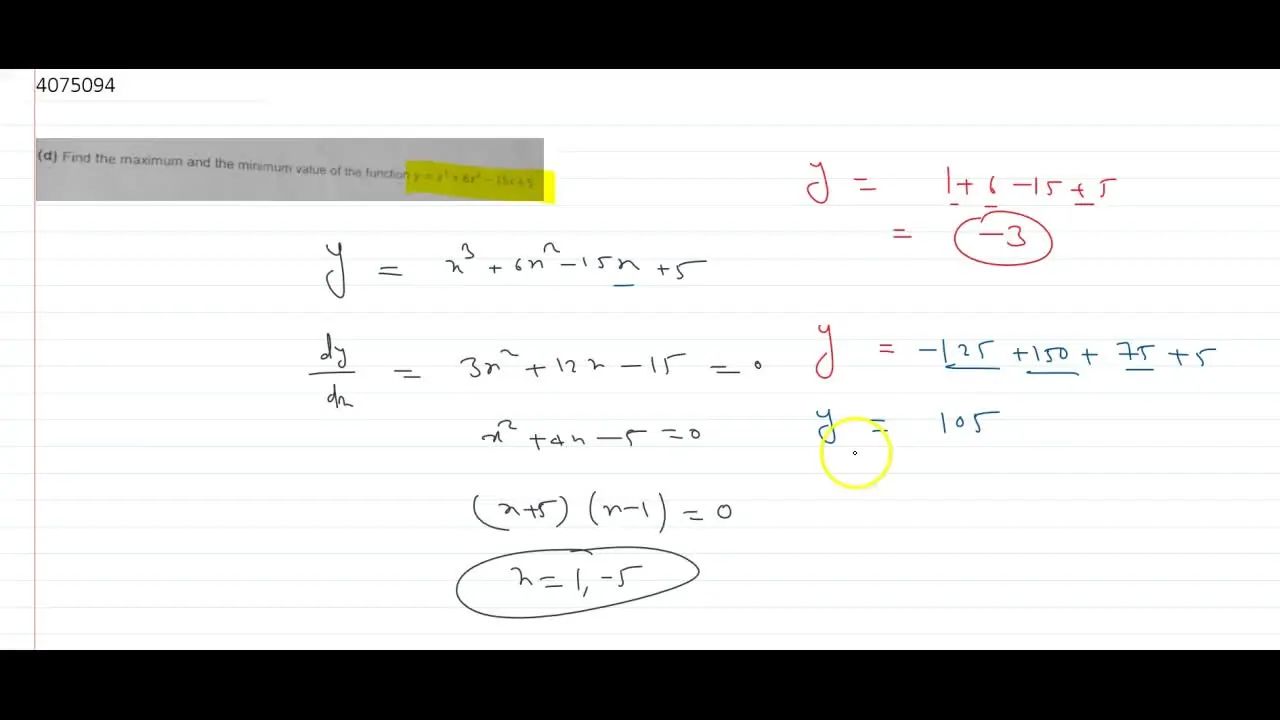 4075094
(d) Find the maximum and the minimum value of the function y = x³ + 6x² − 15x + 5
y = x³ + 6x² − 15x + 5
dy/dx = 3x² + 12x − 15 = 0
x² + 4x − 5 = 0
(x+5) (x−1) = 0
x = 1, −5
y = 1 + 6 − 15 + 5
= −3
y = −125 + 150 + 75 + 5
y = 105